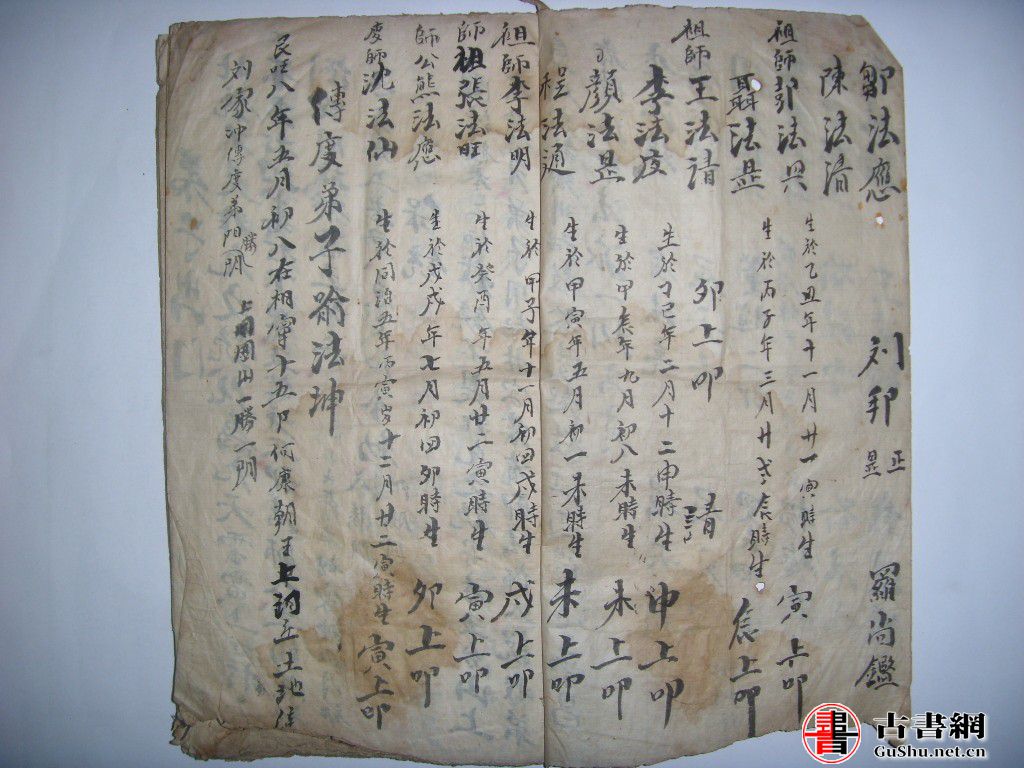 鄒法應 刘 羅尚鑑
正
陳法清
祖師 法興 生於乙丑年十一月廿一寅時生 寅上卯
聶法显 生於丙子年三月廿 辰時生 辰上卯
祖師 王法清 卯上卯
李法度 生於丁巳年二月十二申時生 申上卯
顏法显 生於甲辰年九月初八未時生 未上卯
程法通 生於甲寅年五月初一未時生 未上卯
祖師 李法明 生於甲子年十一月初四戌時生 戌上卯
師祖 張法旺 生於癸酉年五月廿二寅時生 寅上卯
師公 熊法應 生於戊戌年七月初四卯時生 卯上卯
度師 沈法仙 生於同治五年丙寅岁十二月廿二寅時生 寅上卯
傳度弟子喻法坤
民 八年五月初八在相 十五 何 朝王上 立土地
刘家冲傳度弟 山一勝一
古書網
GuShu.net.cn